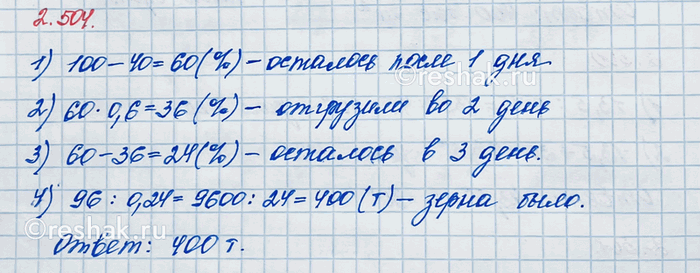 2.504.
1) 100 – 40 = 60 (%) – осталось после 1 дня.
2) 60 · 0,6 = 36 (%) – отгрузили во 2 день
3) 60 – 36 = 24 (%) – осталось в 3 день.
4) 96 : 0,24 = 9600 : 24 = 400 (т) – зерна было.
Ответ: 400 т.
©reshak.ru
©reshak.ru